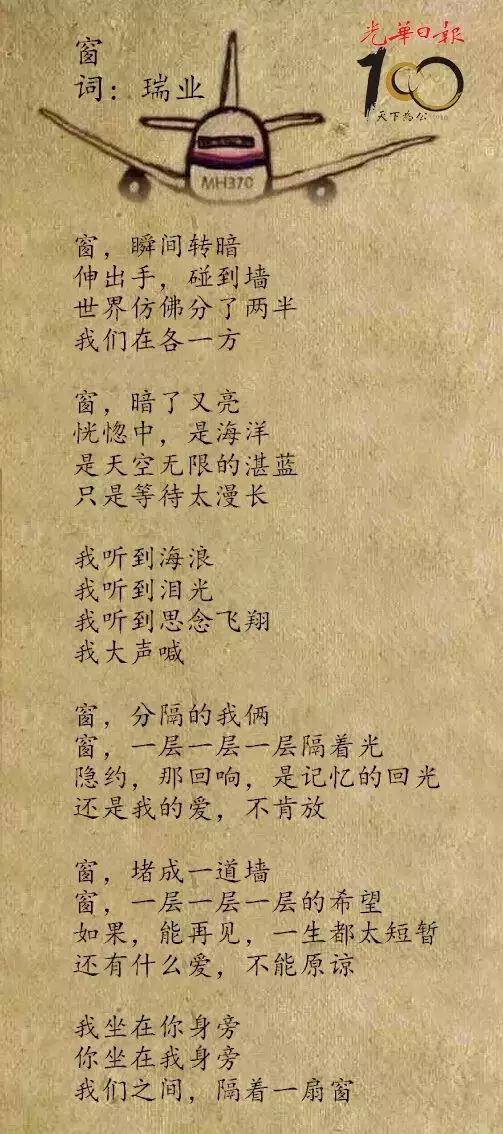 光華日報
100
天下為公
窗
词：瑞业
MH370
窗，瞬间转暗
伸出手，碰到墙
世界仿佛分了两半
我们在各一方
窗，暗了又亮
恍惚中，是海洋
是天空无限的湛蓝
只是等待太漫长
我听到海浪
我听到泪光
我听到思念飞翔
我大声喊
窗，分隔的我俩
窗，一层一层一层隔着光
隐约，那回响，是记忆的回光
还是我的爱，不肯放
窗，堵成一道墙
窗，一层一层一层的希望
如果，能再见，一生都太短暂
还有什么爱，不能原谅
我坐在你身旁
你坐在我身旁
我们之间，隔着一扇窗